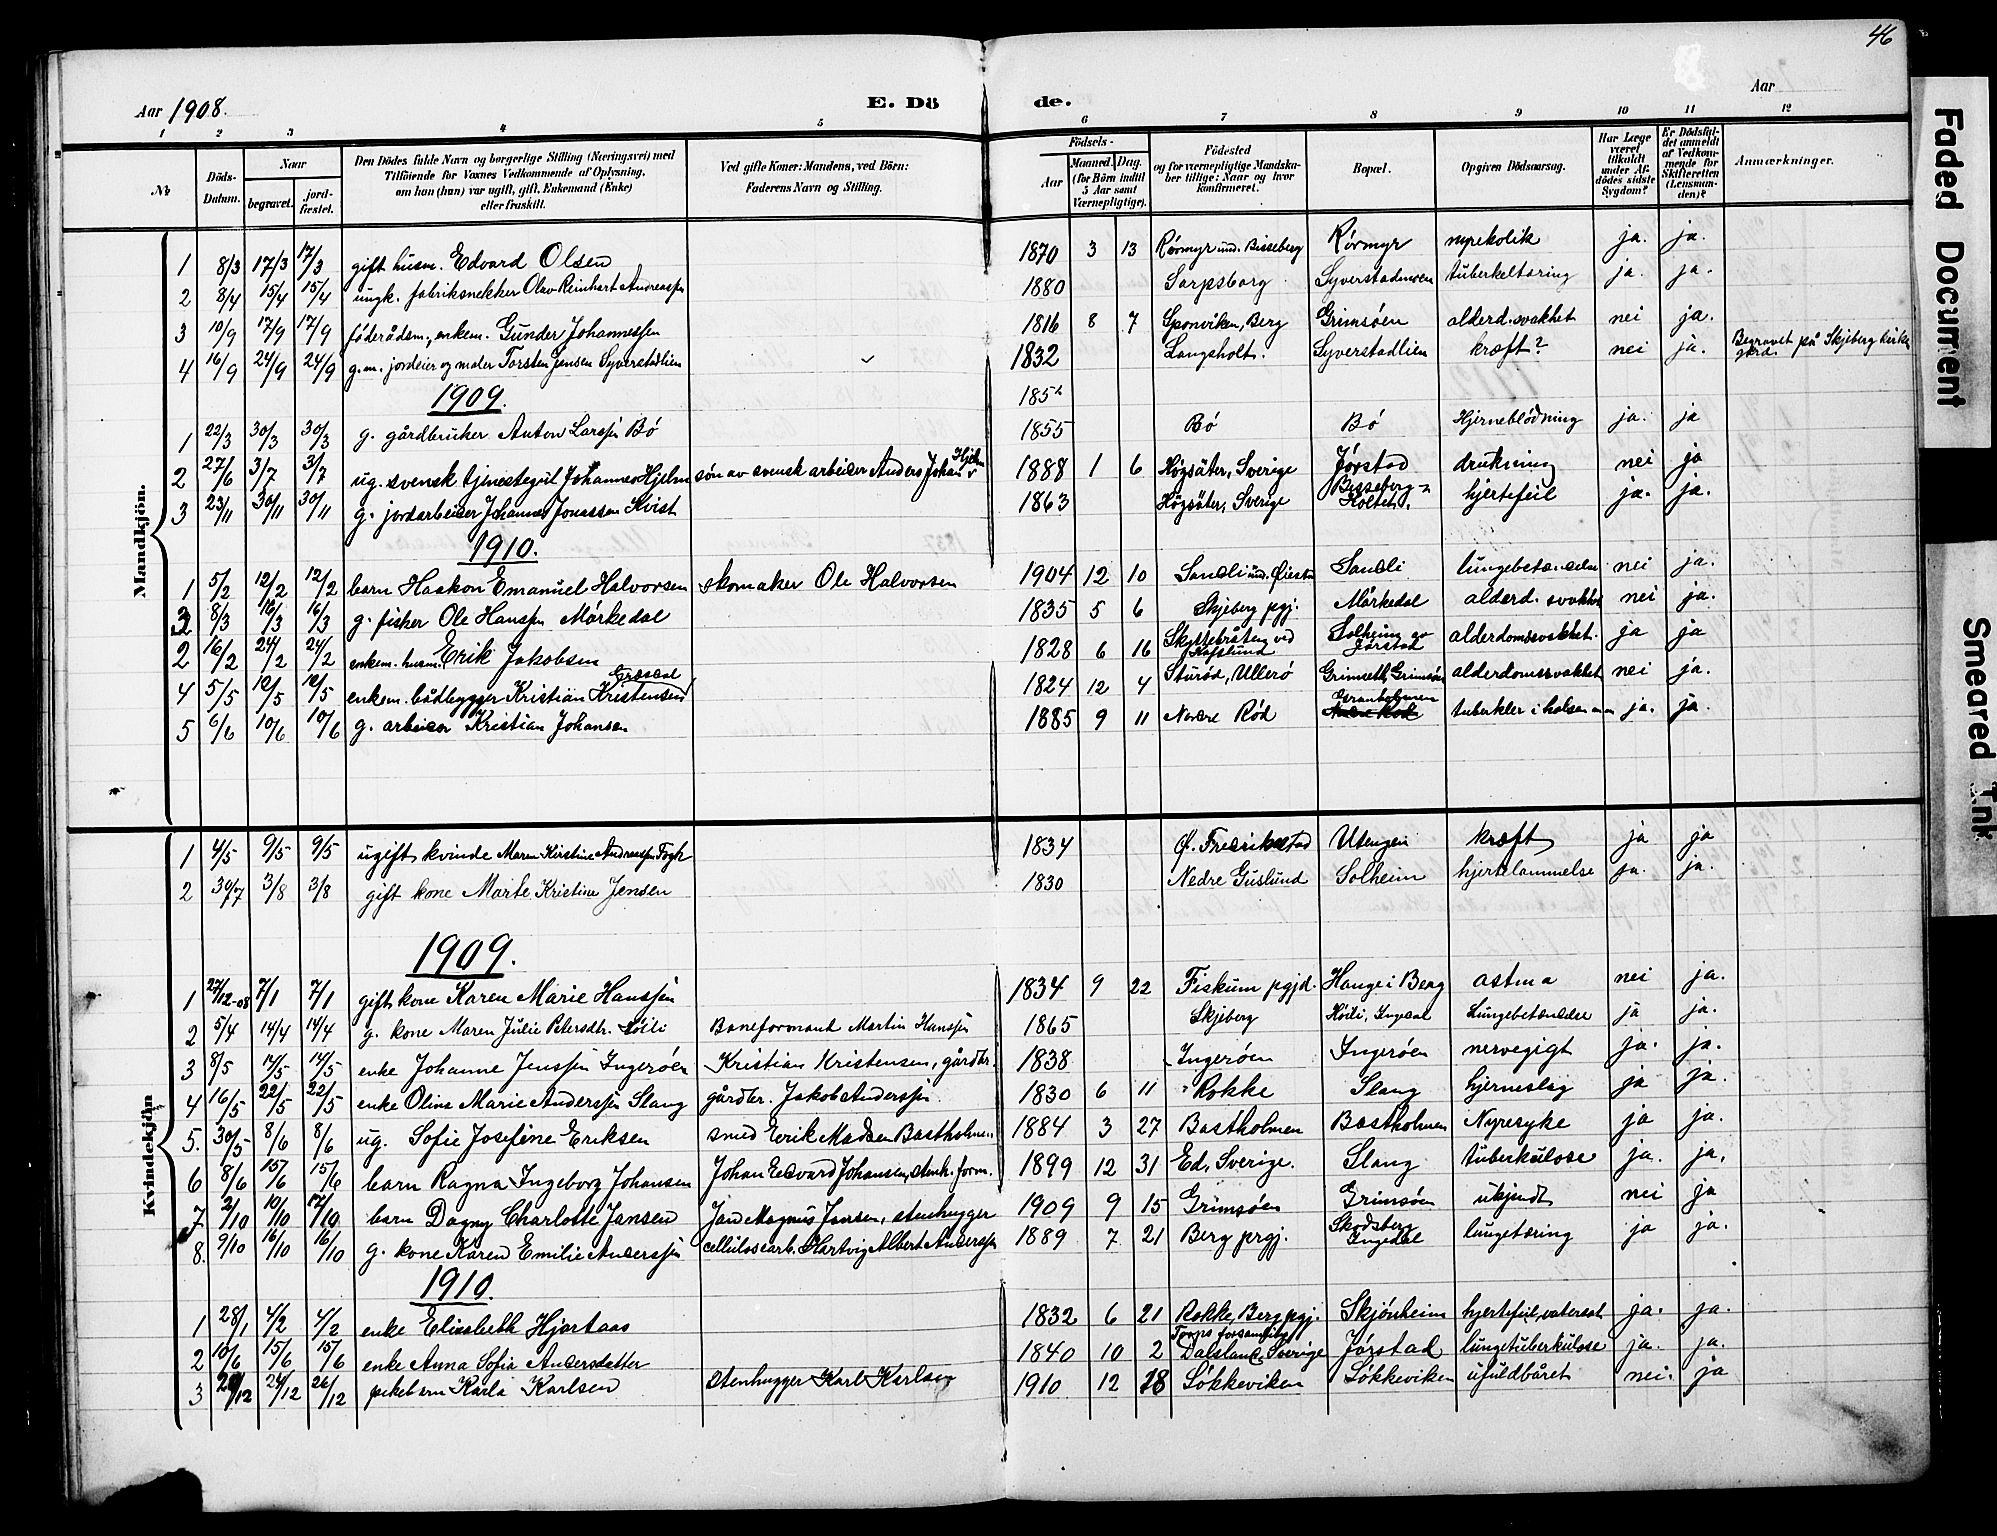 46
Aar 1908. E. Dö de. Aar
1 2 3 4 5 6 7 8 9 10 11 12
No Döds-Datum. Naar begravet. jord-fæstet. Den Dödes fulde Navn og borgerlige Stilling (Næringsvei) med Tilföiende for Voxnes Vedkommende af Oplysning, om han (hun) var ugift, gift, Enkemand (Enke) eller fraskilt. Ved gifte Koner: Mandens, ved Börn: Faderens Navn og Stilling. Födsels- Aar Maaned. Dag. (for Börn indtil 5 Aar samt Værnepligtige). Födested og for værnepligtige Mandskaber tillige: Naar og hvor konfirmeret. Bopæl. Opgiven Dödsaarsag. Har Læge været tilkaldt under Afdödes sidste Sygdom? Er Dödsfaldet anmeldt af Vedkommende for Skifteretten (Lensmanden)? Anmærkninger.
Mandkjön.
1 8/3 17/3 17/3 gift husm. Edvard Olsen 1870 3 13 Rörmyr und. Bisseberg Rörmyr nyrekolik ja. ja.
2 8/4 15/4 15/4 ungk. fabriksnekker Olav Reinhart Andreassen 1880 Sarpsborg Syverstadmoen tuberkeltæring ja. ja.
3 10/9 17/9 17/9 föderådsm., enkem. Gunder Johannessen 1816 8 7 Sponviken, Berg Grimsöen alderd. svakhet nei ja.
4 16/9 24/9 24/9 g.m. jordeier og maler Torsten Jensen Syverstadlien 1832 Langsholt. Syverstadlien kræft? nei ja. Begravet på Skjeberg kirkegård.
1909.
1 22/3 30/3 30/3 g. gårdbruker Anton Larssen Bö 1855 Bö Bö Hjerneblödning ja. ja
2 27/6 3/7 3/7 ug. svensk tjenestegut Johannes Hjelm sön av svensk arbeider Anders Johan Hjelm 1888 1 6 Högsäter, Sverige Jörstad drukning nei ja
3 23/11 30/11 30/11 g. jordarbeider Johannes Jonassen Kvist 1863 Högsäter, Sverige Bisseberg-Holtet. hjertefeil ja. ja.
1910.
1 5/2 12/2 12/2 barn Haakon Emanuel Halvorsen skomaker Ole Halvorsen 1904 12 10 Sandli und. Sandli lungebetændelse nei ja.
3 8/3 16/3 16/3 g. fisker Ole Hanssen Mörkedal 1835 5 6 Skjeberg pgj. Mörkedal alderd. svakhet nei ja.
2 16/2 24/2 24/2 enkem. husm. Erik Jakobsen 1828 6 16 ved Hafslund Solheim av Jörstad alderdomssvakhet. ja ja
4 5/5 12/5 12/5 enkem. båtbygger Kristian Kristensen 1824 12 4 Sturöd, Ullerö Grimseth, Grimsöen alderdomssvakhet nei ja.
5 6/6 10/6 10/6 g. arbeider Kristian Johansen 1885 9 11 Nedre Röd Granholmen tuberkler i halsen ja. ja.
Kvindekjön
1 4/5 9/5 9/5 ugift kvinde Maren Kirstine Andreassen Fogh 1834 Ö. Fredrikstad Utengen kræft ja ja
2 30/7 3/8 3/8 gift kone Marte Kristine Jensen 1830 Nedre Guslund Solheim hjertelammelse ja. ja.
1909.
1 27/12-08 7/1 7/1 gift kone Karen Marie Hanssen 1834 9 22 Fiskum pgjd. Hauge i Berg astma nei ja.
2 5/4 14/4 14/4 g. kone Maren Julie Petersdtr. Höili Baneformant Martin Hanssen 1865 Skjeberg Höili, Ingedal Lungebetændelse ja ja.
3 8/5 14/5 14/5 enke Johanne Jenssen Ingeröen Kristian Kristensen, gårdbr. 1838 Ingeröen Ingeröen nervegigt ja. ja.
4 16/5 22/5 22/5 enke Oline Marie Anderssen Slang gårdbr. Jakob Anderssen. 1830 6 11 Rokke Slang hjerneslag ja ja.
5. 30/5 8/6 8/6 ug. Sofie Josefine Eriksen smed Erik Madsen Bastholmen 1884 3 27 Bastholmen Bastholmen Nyresyke ja ja.
6 8/6 15/6 15/6 barn Ragna Ingeborg Johansen Johan Edvard Johansen, stenh. form. 1899 12 31 Ed, Sverige. Slang tuberkulose ja. ja.
7 2/10 10/10 barn Dagny Charlotte Jansen Jan Magnus Jansen, stenhugger 1909 9 15 Grimsöen Grimsöen ukjendt nei ja
8. 9/10 16/10 16/10 g. kone Karen Emilie Anderssen cellulosearb. Hartvig Albert Anderssen 1889 7 21 Berg prgj. Skodsberg Ingedal lungetæring ja ja.
1910.
1 28/1 4/2 4/2 enke Elisabeth Hjortaas 1832 6 21 Rokke, Berg pgj. Skjönheim hjertefeil, vatersot ja. ja.
2 10/6 15/6 15/6 enke Anna Sofia Andersdatter 1840 10 2 Torps forsamling Dalsland, Sverige Jörstad lungetuberkulose ja. ja.
3 24/12 26/12 pikebarn Karla Karlsen stenhugger Karl Karlsen 1910 12 18 Lökkeviken Lökkeviken ufuldbåret nei. ja
Faded Document
Smeared Ink